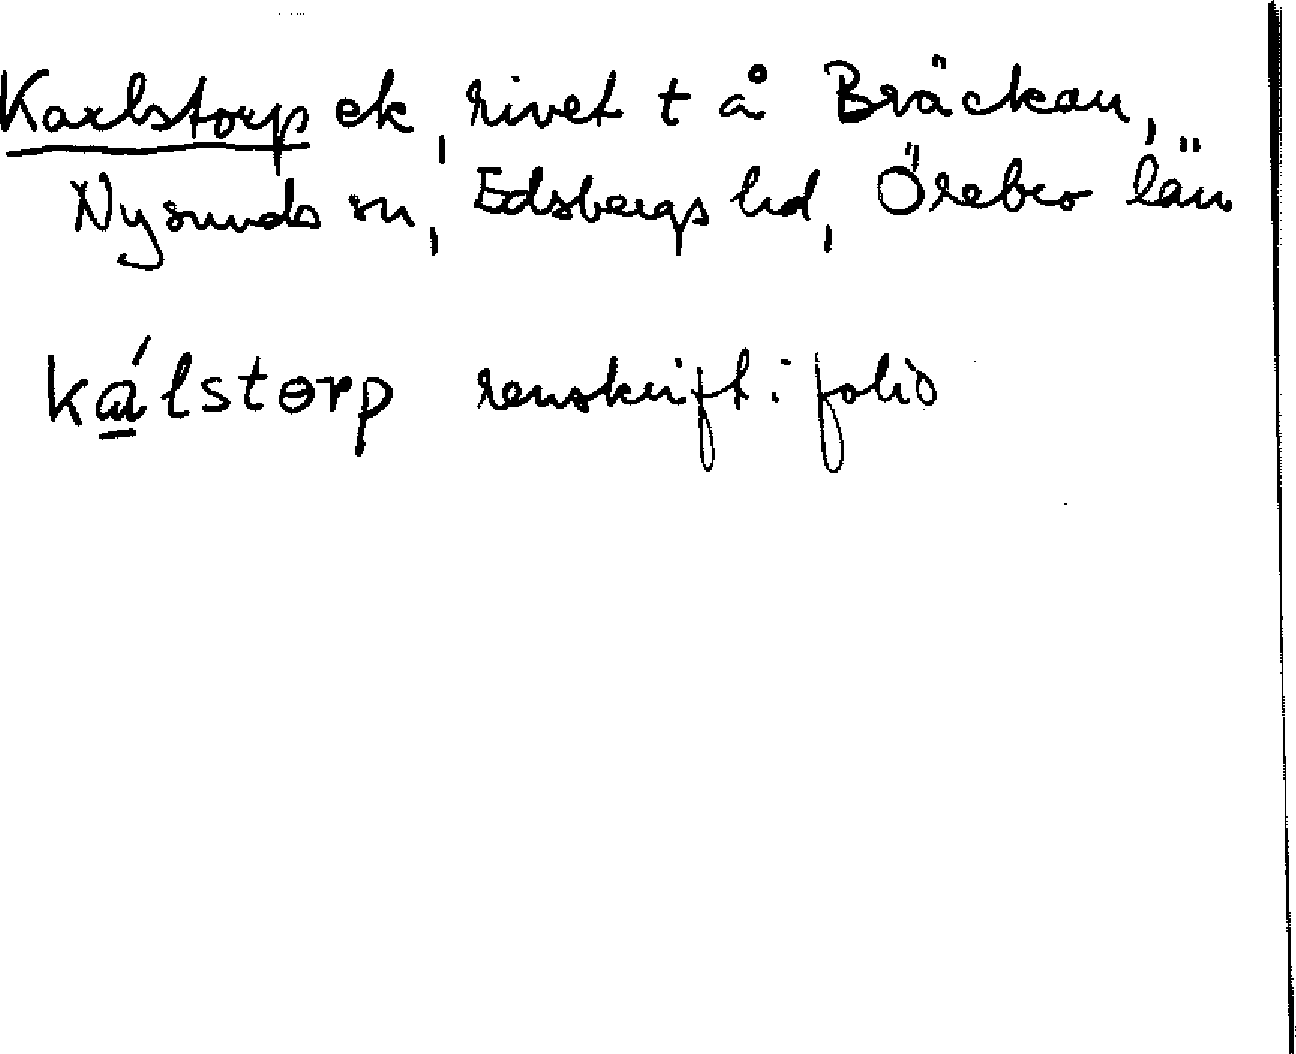 Karlstorp ek, rivet t å Bräckan,
Nysunds sn, Edsbergs hd, Örebro län
ká̱lstɵrp renskrift i folio